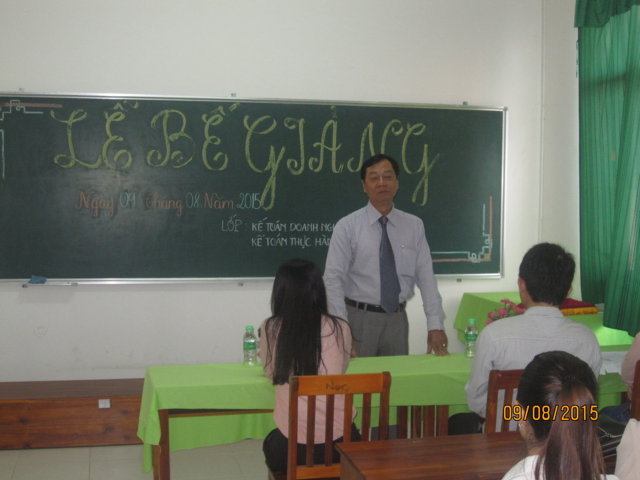 LỄ BẾ GIẢNG
Ngày 09 tháng 08 Năm 2015
LỚP: KẾ TOÁN DOANH
KẾ TOÁN THỰC
09/08/2015